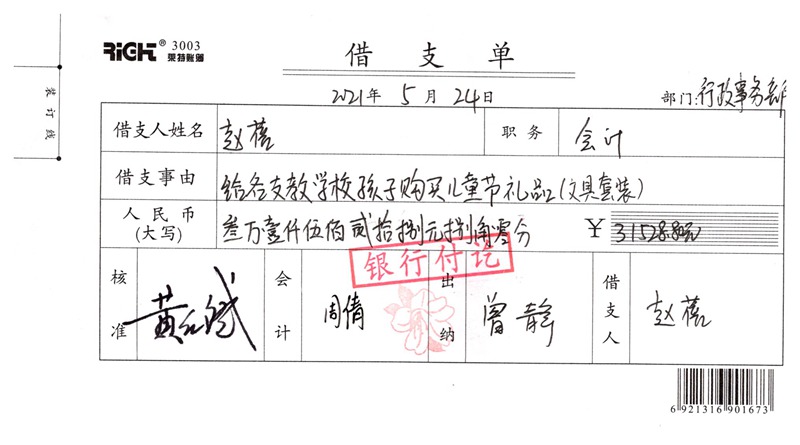 RiGht® 3003
莱特账簿
借支单
2021年 5月 24日
部门:行政事务部
装订线
借支人姓名 赵蓓 职务 会计
借支事由 给各支教学校孩子购买儿童节礼品(文具套装)
人民币(大写) 叁万壹仟伍佰贰拾捌元捌角零分 ¥31528.80元
银行付讫
核准 会计 周倩 出纳 曾静 借支人 赵蓓
6 921316 901673